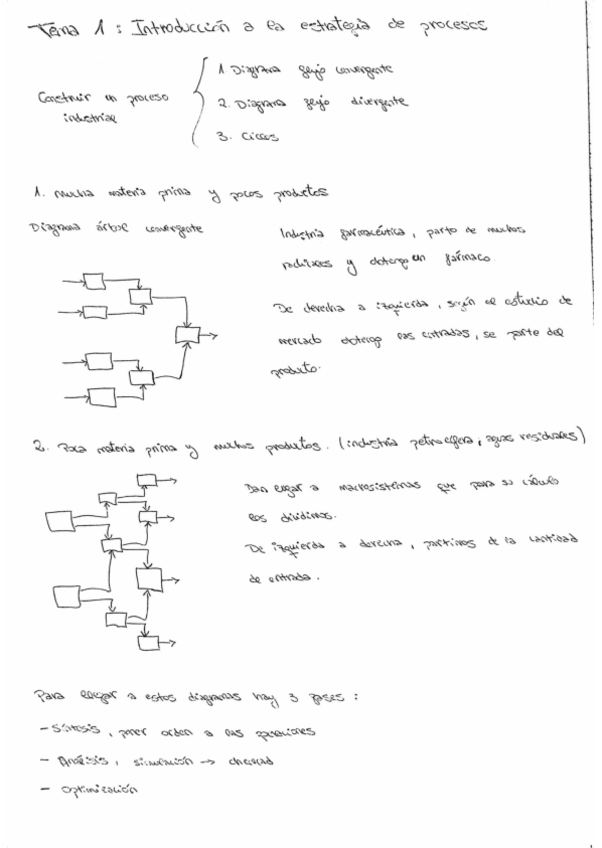 Tema 1: Introducción a la estrategia de procesos
Construir un proceso
industrial
1. Diagrama flujo convergente
2. Diagrama flujo divergente
3. Ciclos
1. Mucha materia prima y pocos productos
Diagrama árbol convergente
Industria farmacéutica, parto de muchos
y obtengo un fármaco.
De derecha a izquierda, según el estudio de
mercado obtengo las entradas, se parte del
producto.
2. Poca materia prima y muchos productos. (industria petrolífera, aguas residuales)
Dan lugar a macrosistemas que para su cálculo
los dividimos.
De izquierda a derecha, partimos de la cantidad
de entrada.
Para llegar a estos diagramas hay 3 fases:
- Síntesis, poner orden a las
- Análisis, simulación →
- Optimización